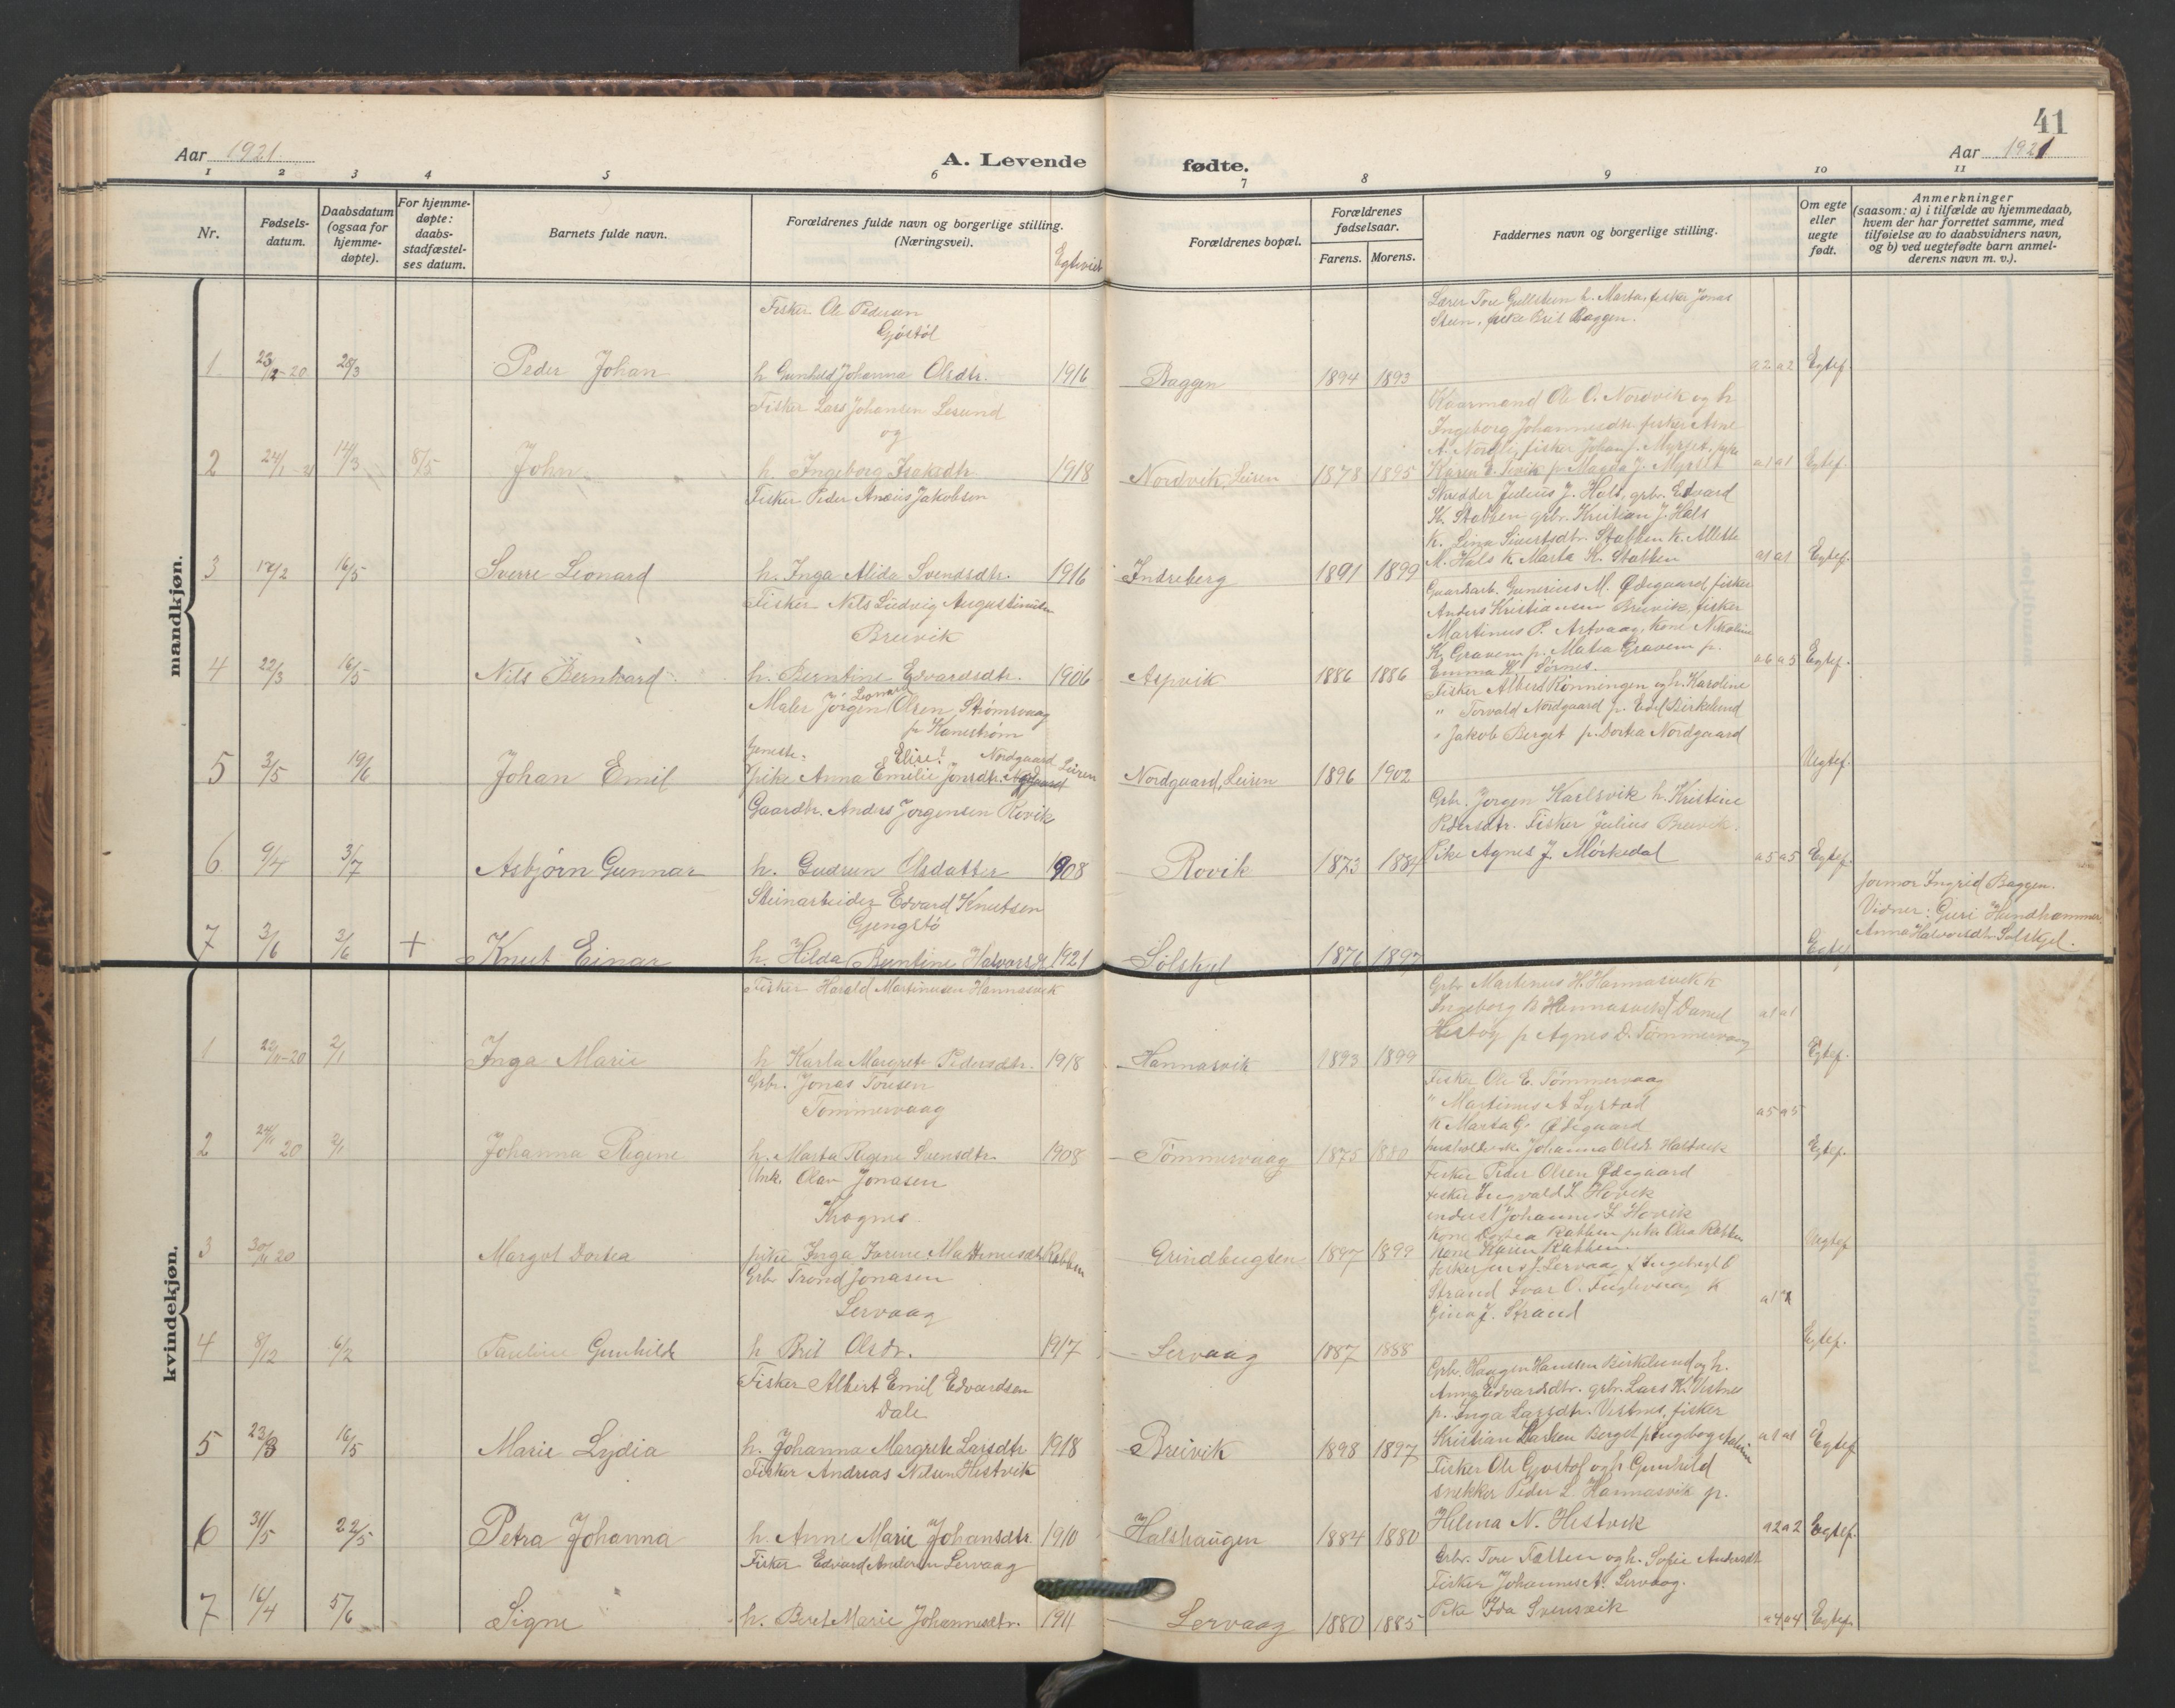 41
Aar 1921
A. Levende
fødte.
Aar 1921
1 2 3 4 5 6 7 8 9 10 11
Nr.
Fødsels-
datum.
Daabsdatum
(ogsaa for
hjemme-
døpte).
For hjemme-
døpte:
daabs-
stadfæstel-
ses datum.
Barnets fulde navn.
Forældrenes fulde navn og borgerlige stilling.
(Næringsvei).
Egtviet
Forældrenes bopæl.
Forældrenes
fødselsaar.
Farens. Morens.
Faddernes navn og borgerlige stilling.
Om egte
eller
uegte
født.
Anmerkninger
(saasom: a) i tilfælde av hjemmedaab,
hvem der har forrettet samme, med
tilføielse av to daabsvidners navn,
og b) ved uegtefødte barn anmel-
derens navn m. v.).
mandkjøn.
Fisker Ole Pedersen
Gjøstøl
Lærer Tore Gullsteen h. Marta, fisker Jonas
Steen, pike Brit Baggen.
1 23/12-20 28/3 Peder Johan h Gunhild Johanna Olsdtr. 1916 Baggen 1894 1893 a2 a2 Egtef.
Fisker Lars Johansen Lesund
og
Kaarmand Ole O. Nordvik og h
Ingeborg Johannesdtr. fisker Arne
A. Nordli, fisker Johan J. Myrset, pike
2 24/1-21 14/3 8/5 John h. Ingeborg Isaksdtr. 1918 Nordvik, Leiren 1878 1895 Karen E. Levik p Magda J. Myrset a1 a1 Egtef.
Fisker Peder Aneus Jakobsen
Skredder Julius J. Hals, grbr. Edvard
K. Stabben grbr. Kristian J. Hals
K. Lina Sivertsdtr. Stabben K. Allette
3 17/2 16/5 Sverre Leonard h. Inga Alida Svendsdtr. 1916 Indreberg 1891 1899 M. Hals K. Marta K. Stabben a1 a1 Egtef.
Fisker Nils Ludvig Augustinusen
Breivik
Gaardsarb. Gunerius M. Ødegaard, fisker
Anders Kristiansen Breivik, fisker
Martinus P. Astvaag, Kone Nikoline
K. Gravem p. Matea Gravem p.
4 22/3 16/5 Nils Bernhard h. Berntine Edvardsdtr. 1906 Aspvik 1886 1886 Emma K. Sørnes. a6 a5 Egtef.
Maler Jørgen Leonard Olsen Strømsvaag
pr Kanestrøm
Fisker Albert Rønningen og h. Karoline
" Torvald Nordgaard p. Edel Birkelund
" Jakob Berget p. Dorthea Nordgaard
Tjeneste- Elise? Nordgaard Leiren
5 3/5 19/6 Johan Emil pike Anna Emelie Jonsdtr. Nordgaard, Leiren 1896 1902 Uegtef.
Gaardbr. Anders Jørgensen Rovik
Grbr. Jørgen Karlsvik h. Kristine
Pedersdtr. Fisker Julius Breivik.
6 9/4 3/7 Asbjørn Gunnar h. Gudrun Olsdatter 1908 Rovik 1873 1884 Pike Agnes J. Mørkedal a5 a5 Egtef.
Steinarbeider Edvard Knutsen
Gjengstø
Jormor Ingrid Baggen.
Vidner: Guri Hundhammer
Anna Halvorsdtr. Solskjel.
7 3/6 3/6 + Knut Einar h. Hilda Berntine Halvorsdtr 1921 Solskjel 1876 1897 Egtef
kvindekjøn.
Fisker Harald Martinusen Hannasvik
Grbr Martinus H. Hannasvik k
Ingeborg B Hannasvik f Daniel a1 a1
Hestøy p Agnes D. Tømmervaag
1 22/11-20 2/1 Inga Marie h Karla Margrete Pedersdtr. 1918 Hannasvik 1893 1899 Egtef.
Grbr. Jonas Toresen
Tømmervaag
Fisker Ole E. Tømmervaag
" Martinus A Lystad a5 a5
K Marta G. Ødegaard
2 24/11 20 2/1 Johanna Regine h. Marta Regine Svensdtr. 1908 Tømmervaag 1875 1880 Johanna Olsdr. Halsvik Egtef.
Unk. Olav Jonasen
Krognes.
Fisker Peder Olsen Ødegaard
fisker Ingvald L Hovik
indust Johannes L Hovik
Kone Dortea Rabben pike Olea Rabben
3 30/11 20 Margot Dortea pike Inga Jorine Martinusdtr. Rabben Grindbugten 1897 1899 Kone Karen Rabben. Uegtef
Grbr Trond Jonasen
Lervaag
fisker Jens J. Lervaag f Ingebrigt O
Strand Ivar O. Fuglevaag K
Gina J. Strand a1
4 8/12 6/2 Pauline Gunhild h Brit Olsdr. 1917 Lervaag 1887 1888 Egtef.
Fisker Albert Emil Edvardsen
Dale
Grbr. Haagen Hanssen Birkelund og h.
Anna Edvardsdtr. grbr. Lars K. Vestnes
p. Inga Larsdtr. Vestnes, fisker
5 23/3 16/5 Marie Lydia h. Johanna Margrete Larsdtr 1918 Breivik 1898 1897 Kristian Larsen Berget p Ingeborg a1 a1 Egtef
Fisker Andreas Nilsen Hestvik
Fisker Ole Gjøstøl og h Gunhild
snekker Peder L. Hannasvik p.
6 31/5 22/5 Petra Johanna h. Anne Marie Johansdtr. 1910 Halshaugen 1884 1880 Helena N. Hestvik a2 a2 Egtef.
Fisker Edvard Andersen Lervaag
Grbr. Tore Fætten og h. Sofie Andersdtr
Fisker Johannes A. Lervaag.
7 16/4 5/6 Signe h. Beret Marie Johannesdtr. 1911 Lervaag 1880 1885 Pike Ida Svensvik a4 a4 Egtef.